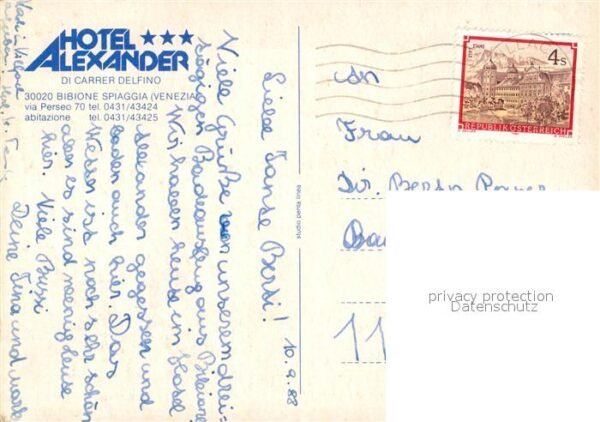 HOTEL ★★★
ALEXANDER
DI CARRER DELFINO
30020 BIBIONE SPIAGGIA (VENEZIA)
via Perseo 70 tel. 0431/43424
abitazione tel. 0431/43425
10.9.88
Liebe Tante Berti!
Viele Grüße von unserem drei-
tägigen Badeausflug aus Bibione
Wir haben heute im Hotel
Alexander gegessen und
baden auch hier. Das
Wetter ist noch sehr schön
aber es sind wenig Leute
hier. Viele Bussi
Deine Tina und
studio penta linea
An
Frau
Dir. Berta
11
STAMS
4 S
REPUBLIK ÖSTERREICH
privacy protection
Datenschutz